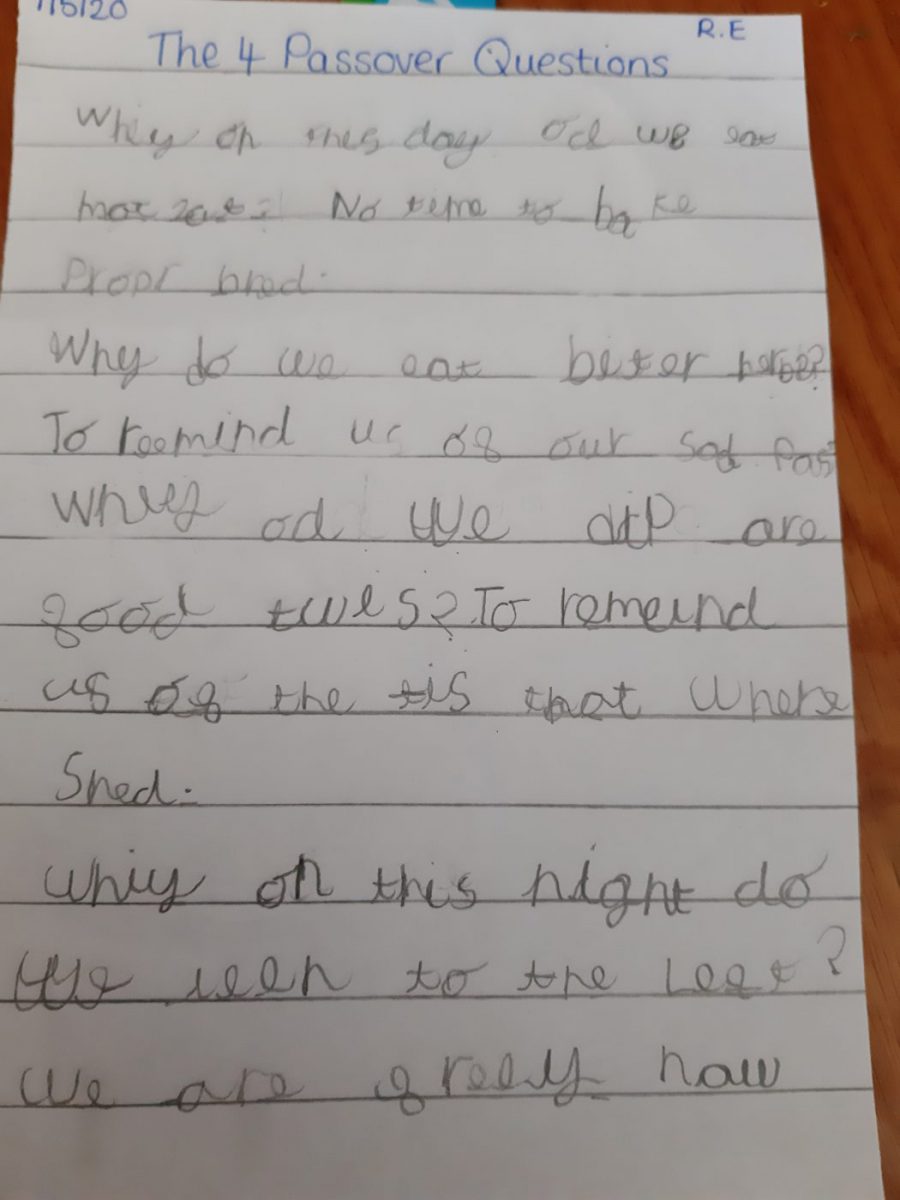 1/5/20
R.E
The 4 Passover Questions
Whiy on this day od we eat
mot zat? No teme to bake
Propr bred.
Why do we eat beter herbe?
To reemind us of our sad Past
Whiy od We dip are
food twis? To remeind
us of the tis that Where
Shed.
Whiy on this night do
We leen to the Leet?
We are freey now